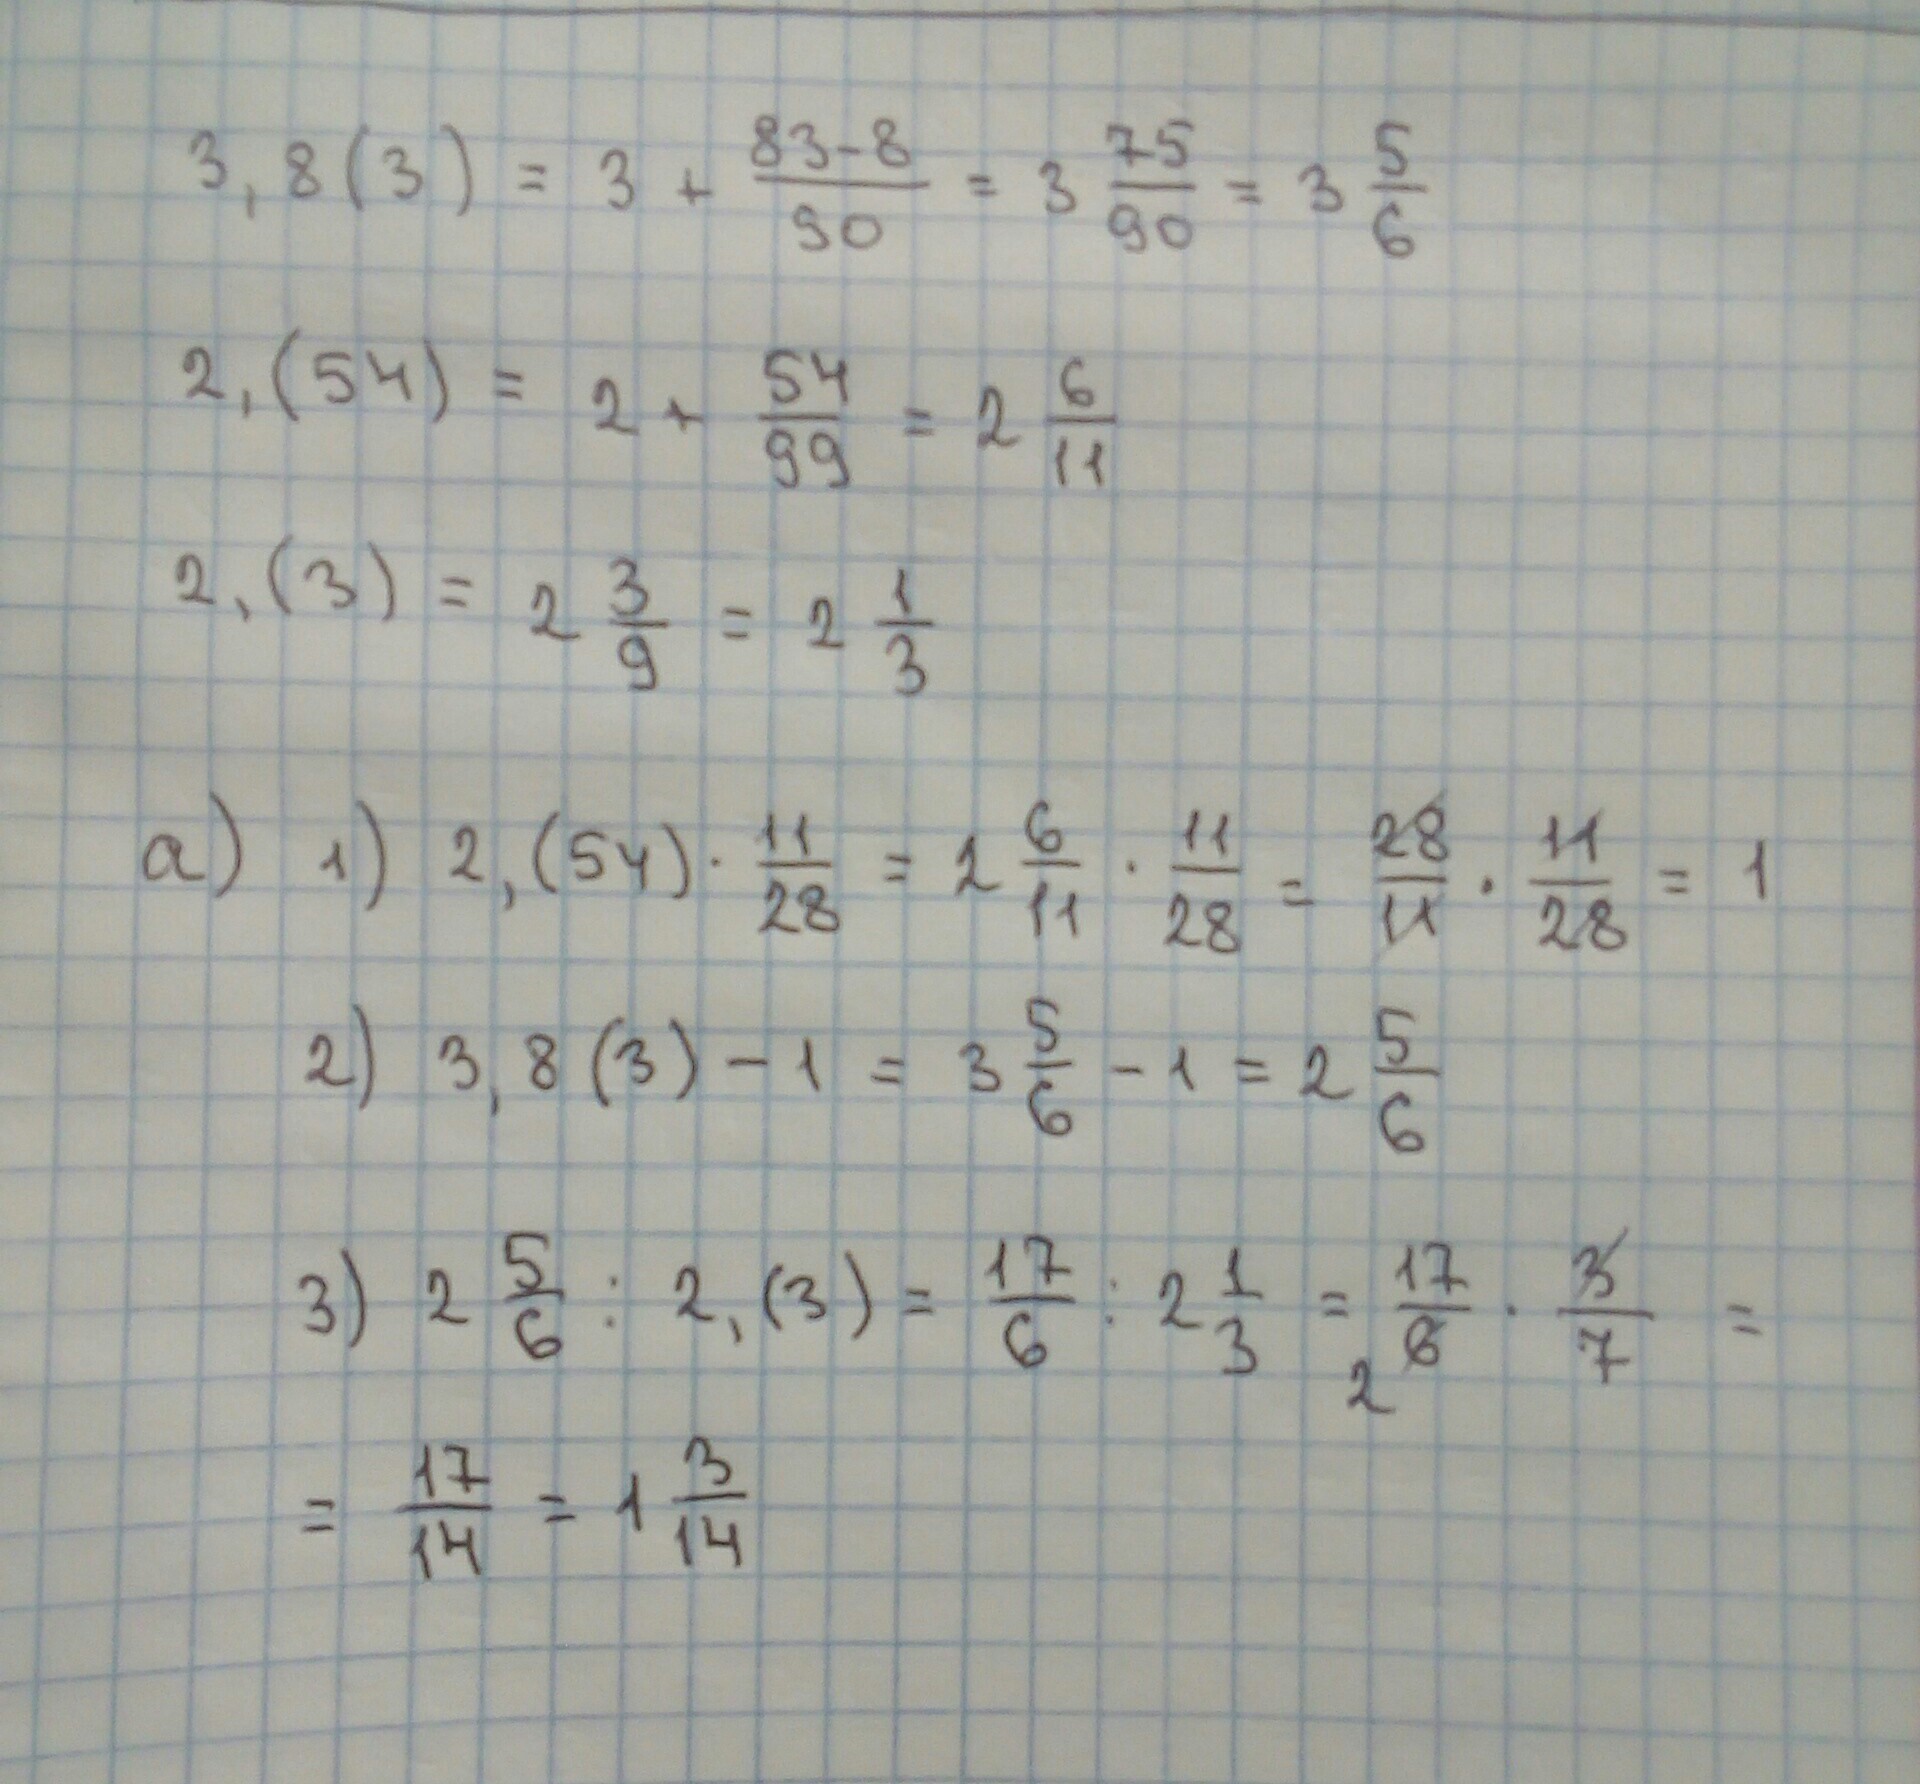 3,8(3) = 3 + 83-8/90 = 3 75/90 = 3 5/6
2,(54) = 2 + 54/99 = 2 6/11
2,(3) = 2 3/9 = 2 1/3
а) 1) 2,(54) · 11/28 = 2 6/11 · 11/28 = 28/11 · 11/28 = 1
2) 3,8(3) - 1 = 3 5/6 - 1 = 2 5/6
3) 2 5/6 : 2,(3) = 17/6 : 2 1/3 = 17/6 2 · 3/7 =
= 17/14 = 1 3/14